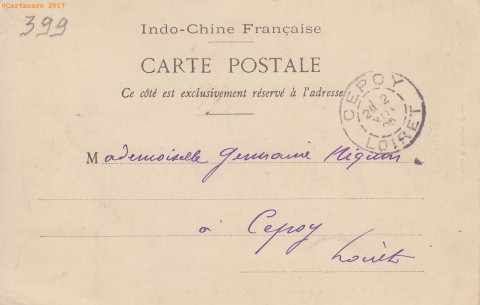 ©Cartacaro 2017
399
Indo-Chine Française
CARTE POSTALE
Ce côté est exclusivement réservé à l'adresse
CEPOY
2
05
LOIRET
Mademoiselle Germaine
à Cepoy
Loiret